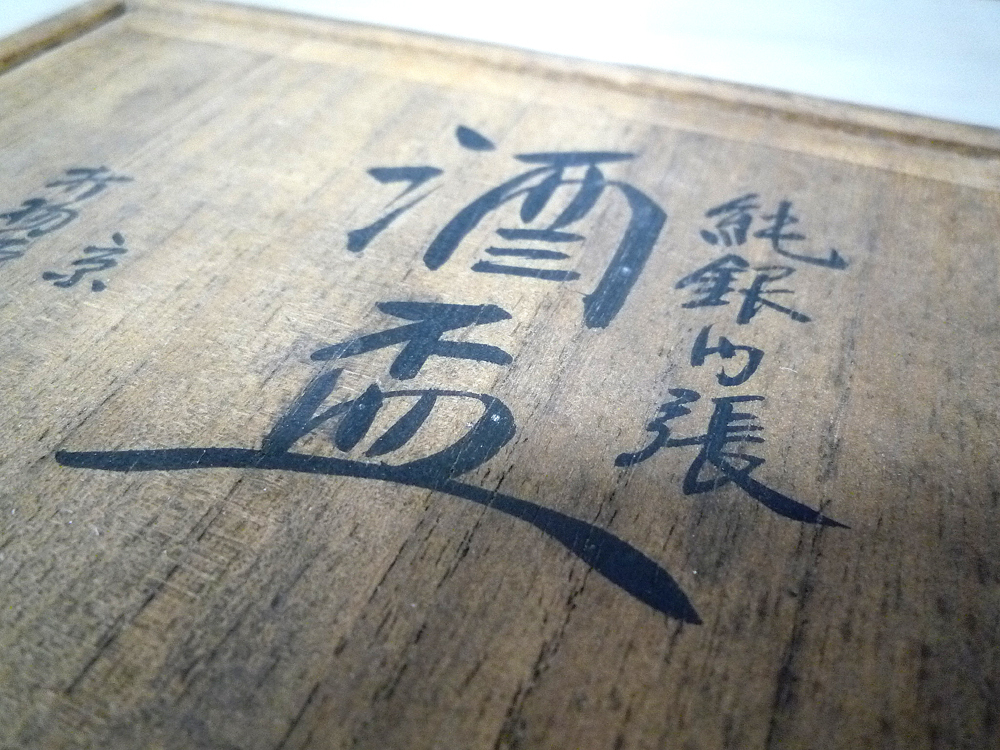 純銀内張
酒盃
京